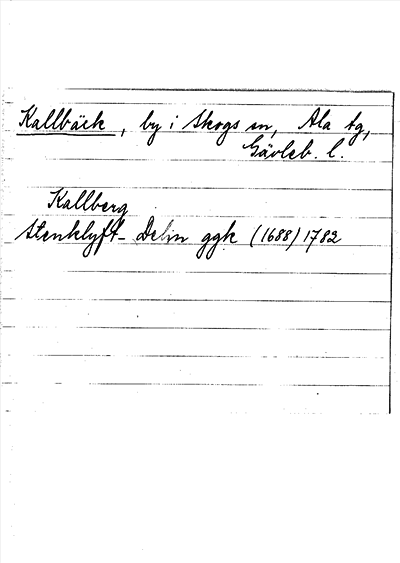 Kallbäck, by i Skogs sn, Ala tg,
Gävleb. l.
Kallberg
Stenklyft- Delin ggk (1688) 1782